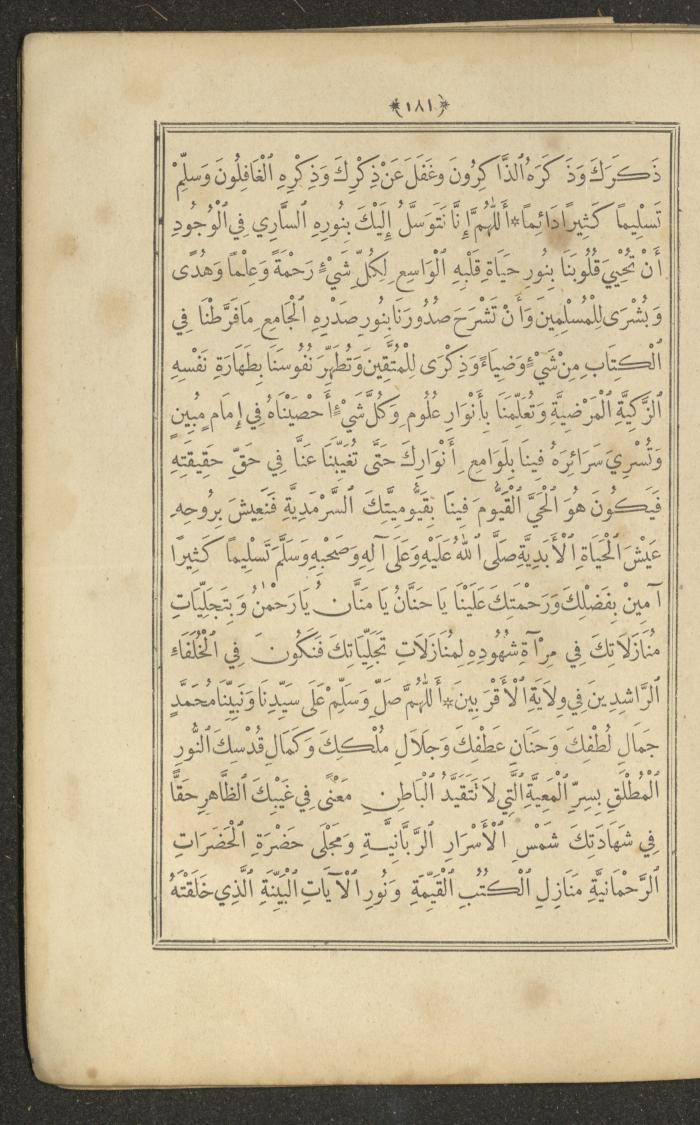 ﴿١٨١﴾
ذَكَرَكَ وَذَكَرَهُ ٱلذَّاكِرُونَ وغَفَلَ عَنْ ذِكْرِكَ وَذِكْرِهِ ٱلْغَافِلُونَ وَسَلِّمْ
تَسْلِيماً كَثِيرًا دَائِماً * أَللّٰهُمَّ إِنَّا نَتَوَسَّلُ إِلَيْكَ بِنُورِهِ ٱلسَّارِي فِي ٱلْوُجُودِ
أَنْ تُحْيِيَ قُلُوبَنَا بِنُورِ حَيَاةِ قَلْبِهِ ٱلْوَاسِعِ لِكُلِّ شَيْءٍ رَحْمَةً وَعِلْماً وَهُدًى
وَبُشْرَى لِلْمُسْلِمِينَ وَأَنْ تَشْرَحَ صُدُورَنَا بِنُورِ صَدْرِهِ ٱلْجَامِعِ مَا فَرَّطْنَا فِي
ٱلْكِتَابِ مِنْ شَيْءٍ وَضِيَاءً وَذِكْرَى لِلْمُتَّقِينَ وَتُطَهِّرَ نُفُوسَنَا بِطَهَارَةِ نَفْسِهِ
ٱلزَّكِيَّةِ ٱلْمَرْضِيَّةِ وَتُعَلِّمَنَا بِأَنْوَارِ عُلُومِ وَكُلَّ شَيْءٍ أَحْصَيْنَاهُ فِي إِمَامٍ مُبِينٍ
وَتُسْرِيَ سَرَائِرَهُ فِينَا بِلَوَامِعِ أَنْوَارِكَ حَتَّى تُغَيِّبَنَا عَنَّا فِي حَقِّ حَقِيقَتِهِ
فَيَكُونَ هُوَ ٱلْحَيَّ ٱلْقَيُّومَ فِينَا بِقَيُّومِيَّتِكَ ٱلسَّرْمَدِيَّةِ فَنَعِيشَ بِرُوحِهِ
عَيْشَ ٱلْحَيَاةِ ٱلْأَبَدِيَّةِ صَلَّى ٱللهُ عَلَيْهِ وَعَلَى آلِهِ وَصَحْبِهِ وَسَلَّمَ تَسْلِيماً كَثِيرًا
آمِينْ بِفَضْلِكَ وَرَحْمَتِكَ عَلَيْنَا يَا حَنَّانُ يَا مَنَّانُ يَا رَحْمٰنُ وَبِتَجَلِّيَاتِ
مُنَازَلَاتِكَ فِي مِرْآةِ شُهُودِهِ لِمُنَازَلَاتِ تَجَلِّيَاتِكَ فَنَكُونَ فِي ٱلْخُلَفَاءِ
ٱلرَّاشِدِينَ فِي وِلَايَةِ ٱلْأَقْرَبِينَ * أَللّٰهُمَّ صَلِّ وَسَلِّمْ عَلَى سَيِّدِنَا وَنَبِيِّنَا مُحَمَّدٍ
جَمَالِ لُطْفِكَ وَحَنَانِ عَطْفِكَ وَجَلَالِ مُلْكِكَ وَكَمَالِ قُدْسِكَ ٱلنُّورِ
ٱلْمُطْلَقِ بِسِرِّ ٱلْمَعِيَّةِ ٱلَّتِي لَا تَتَقَيَّدُ ٱلْبَاطِنِ مَعْنًى فِي غَيْبِكَ ٱلظَّاهِرِ حَقًّا
فِي شَهَادَتِكَ شَمْسِ ٱلْأَسْرَارِ ٱلرَّبَّانِيَّةِ وَمَجْلَى حَضْرَةِ ٱلْحَضَرَاتِ
ٱلرَّحْمَانِيَّةِ مَنَازِلِ ٱلْكُتُبِ ٱلْقَيِّمَةِ وَنُورِ ٱلْآيَاتِ ٱلْبَيِّنَةِ ٱلَّذِي خَلَقْتَهُ